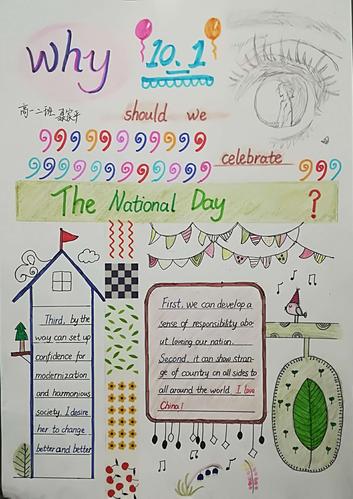 Why 10.1
should we
celebrate
The National Day ?
First, we can develop a
sense of responsibility abo-
ut loving our nation.
Second, it can show stran-
ge of country on all sides to
all around the world. I love
China!
Third, by the
way can set up
confidence for
modernization
and harmonious
society. I desire
her to change
better and better
高一二班